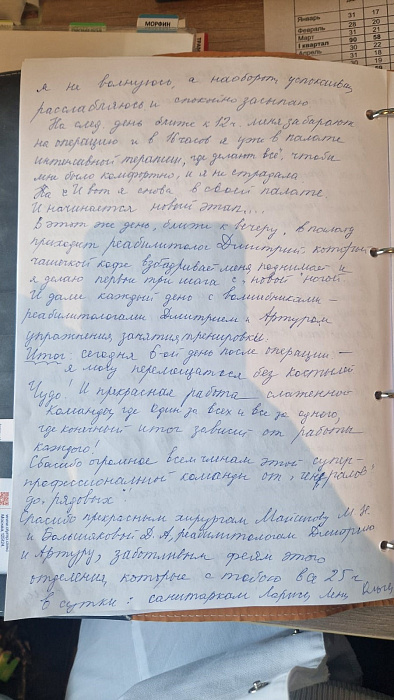 МОРФИН
Январь 31 17
Февраль 28 20
Март 31 21
I квартал 90 58
Апрель 30 22
31 18
30 19
я не волнуюсь, а наоборот, успокаиваюсь
расслабляюсь и спокойно засыпаю
На след. день ближе к 12ч. меня забирают
на операцию и в 16 часов я уже в палате
интенсивной терапии, где делают всё, чтобы
мне было комфортно, и я не страдала
И вот я снова в своей палате.
И начинается новый этап....
В этот же день, ближе к вечеру, в палату
приходит реабилитолог Дмитрий, который
чашечкой кофе взбадривает меня, поднимает и
я делаю первые три шага с „новой" ногой.
И далее каждый день с волшебниками –
реабилитологами Дмитрием и Артуром
упражнения, занятия, тренировки.
Итог: сегодня 6-ой день после операции –
я могу перемещаться без костылей
Чудо! И прекрасная работа слаженной
команды, где один за всех и все за одного,
где конечный итог зависит от работы
каждого!
Спасибо огромное всем членам этой супер-
профессиональной команды от „генералов"
до „рядовых"!
Спасибо прекрасным хирургам М. Н.
и Большаковой Д. А., реабилитологам Дмитрию
и Артуру, заботливым феям этого
отделения, которые с тобой все 25 ч
в сутки: санитаркам Ларисе, Лене, Ольге